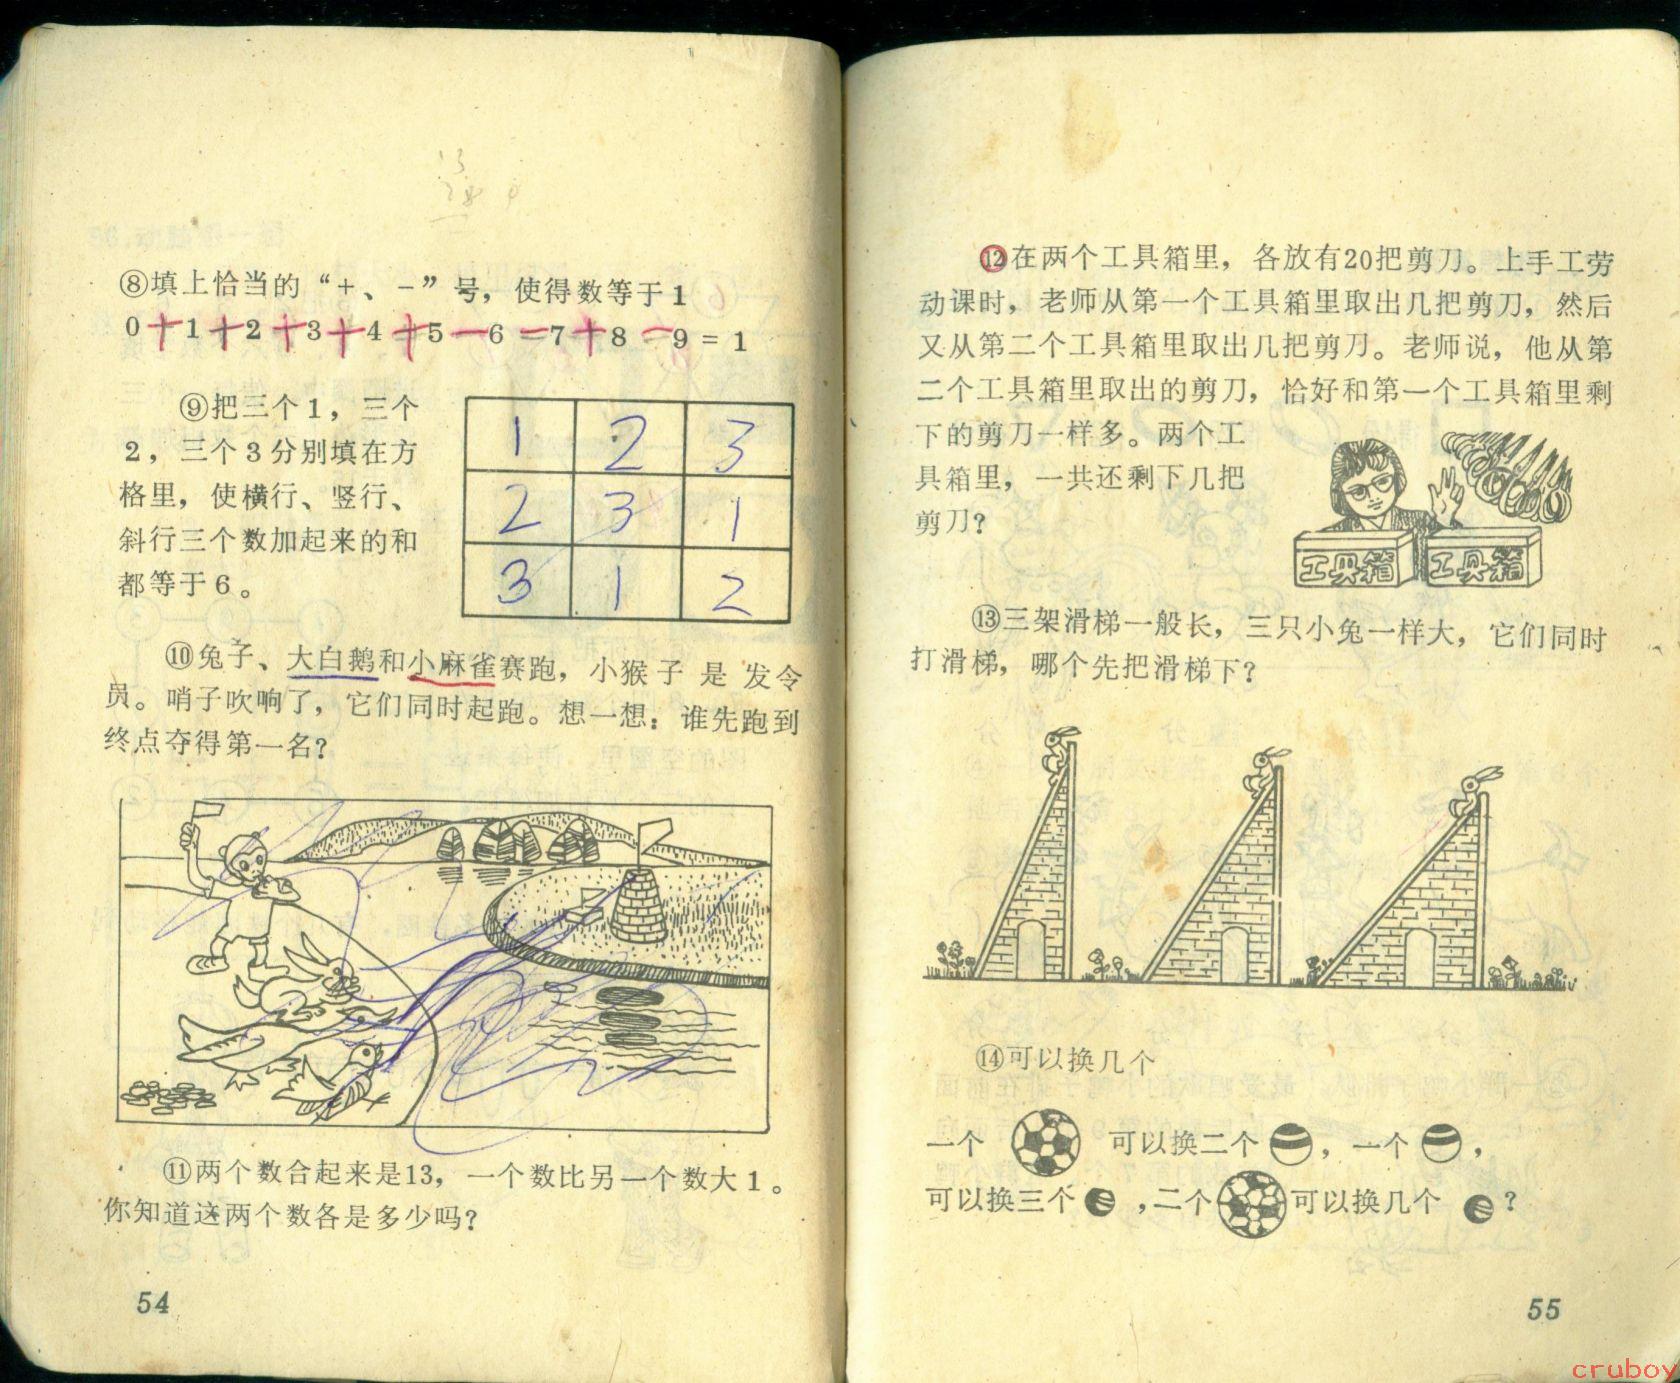 ⑧填上恰当的“+、-”号，使得数等于1
0+1+2+3+4+5-6-7+8-9=1
⑨把三个1，三个
2，三个3分别填在方
格里，使横行、竖行、
斜行三个数加起来的和
都等于6。
1 2 3
2 3 1
3 1 2
⑩兔子、大白鹅和小麻雀赛跑，小猴子是发令
员。哨子吹响了，它们同时起跑。想一想：谁先跑到
终点夺得第一名？
⑪两个数合起来是13，一个数比另一个数大1。
你知道这两个数各是多少吗？
54
⑫在两个工具箱里，各放有20把剪刀。上手工劳
动课时，老师从第一个工具箱里取出几把剪刀，然后
又从第二个工具箱里取出几把剪刀。老师说，他从第
二个工具箱里取出的剪刀，恰好和第一个工具箱里剩
下的剪刀一样多。两个工
具箱里，一共还剩下几把
剪刀？
工具箱 工具箱
⑬三架滑梯一般长，三只小兔一样大，它们同时
打滑梯，哪个先把滑梯下？
⑭可以换几个
一个 可以换二个 ，一个 ，
可以换三个 ，二个 可以换几个 ？
55
cruboy